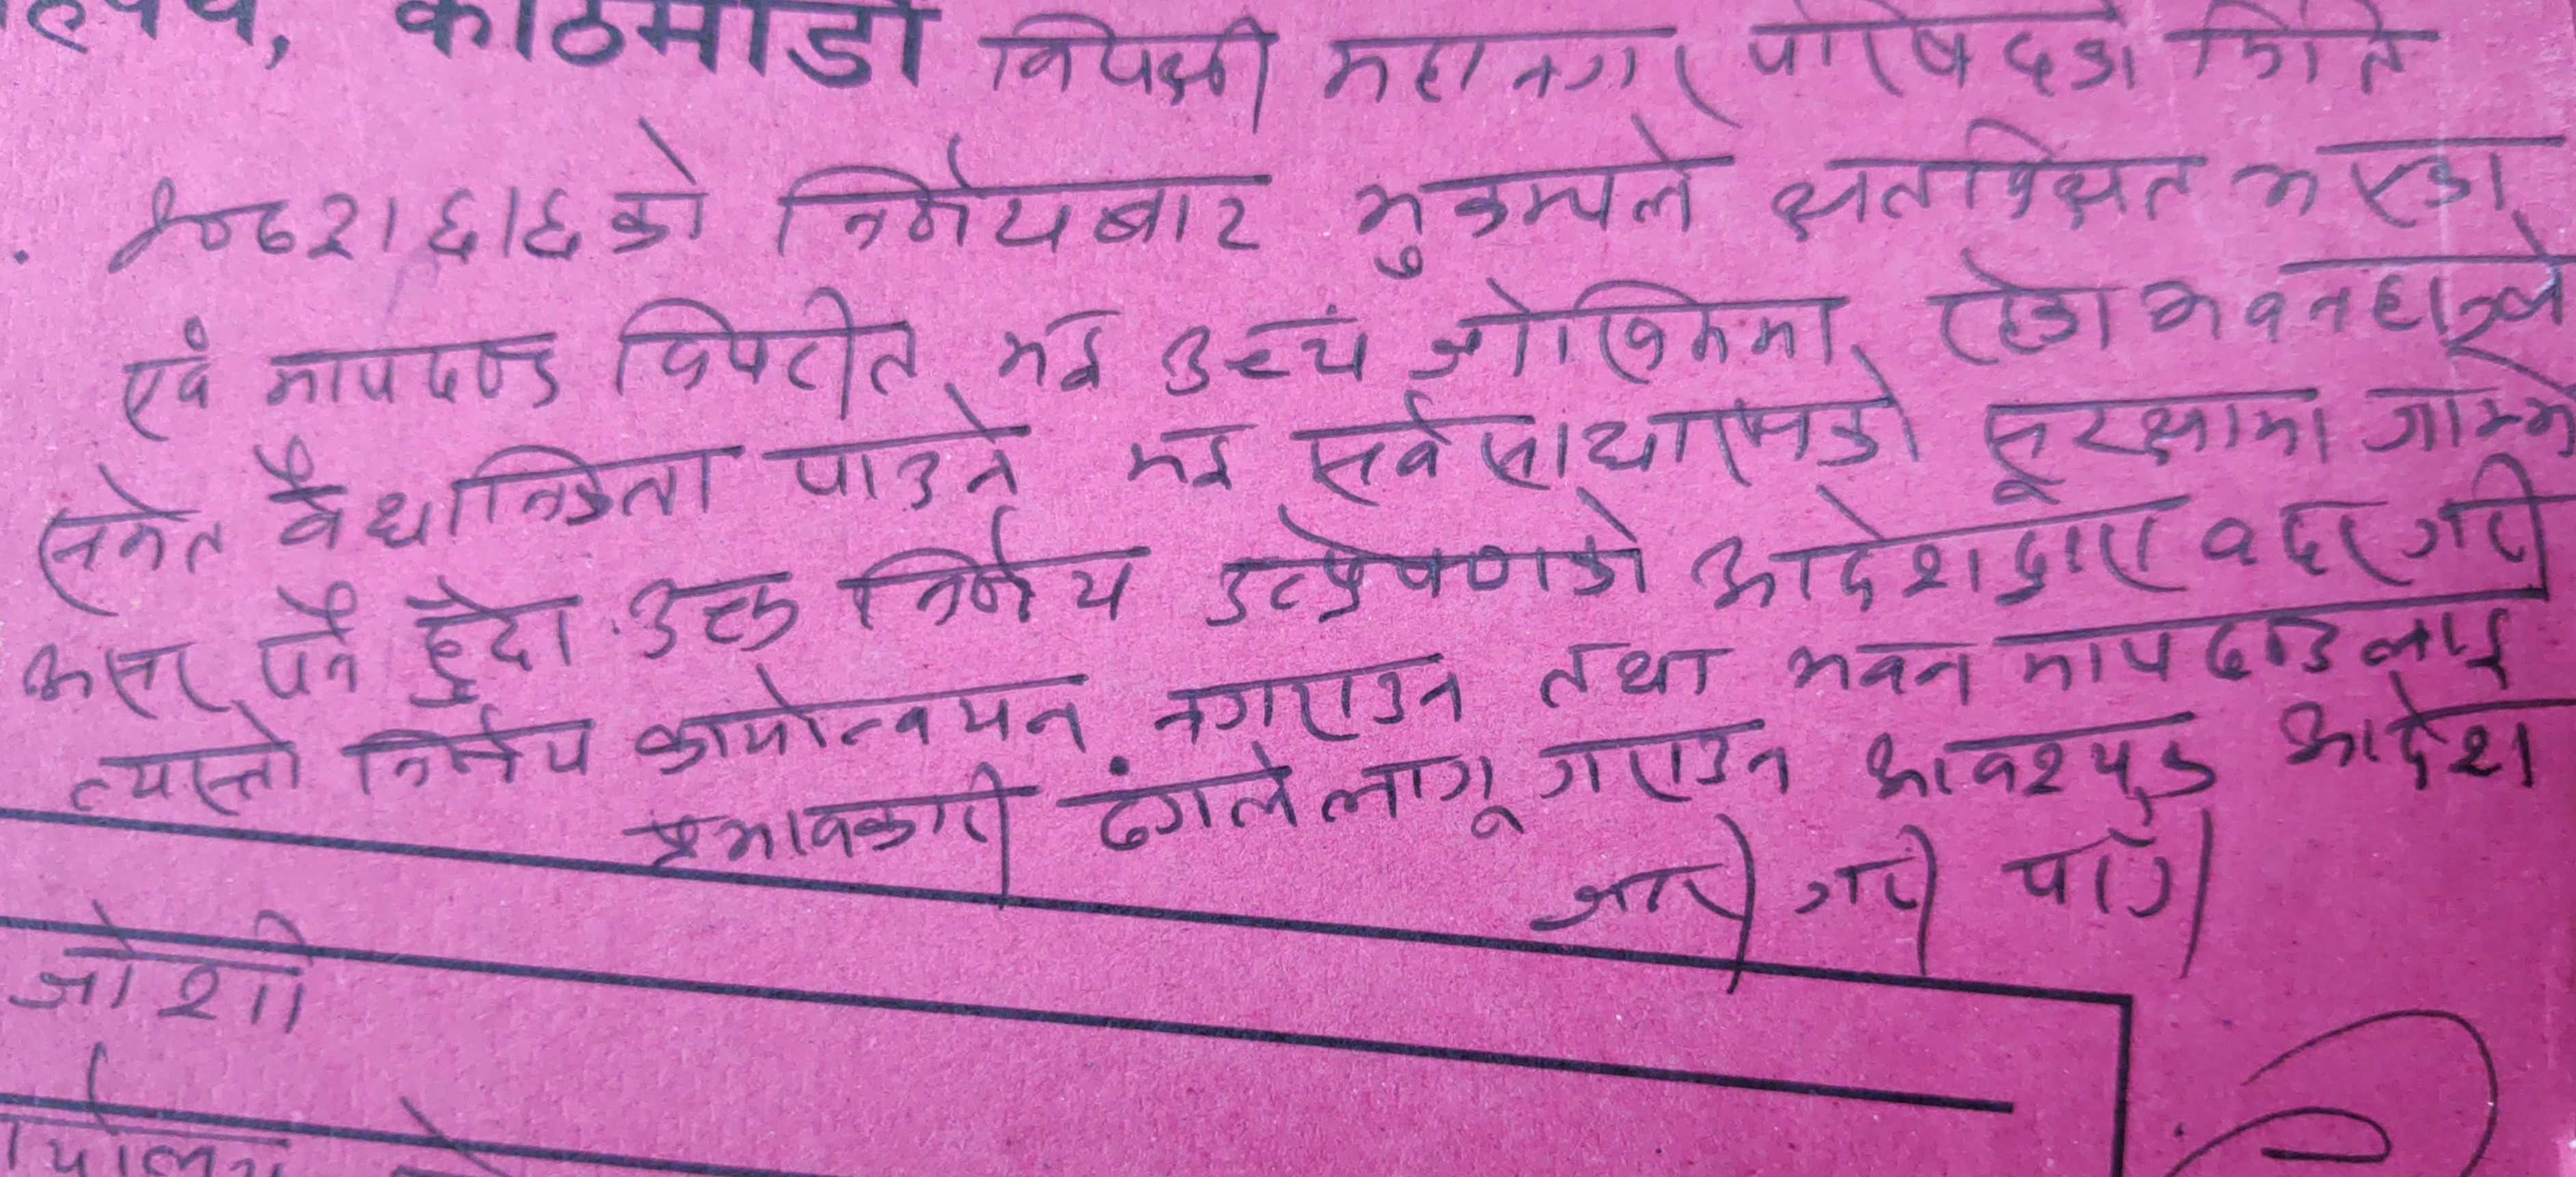 काठमाडौं विपक्षी महानगर परिषदको मिति
२०७२।६।६ को निर्णयबाट भुकम्पले क्षतविक्षत भएका
एवं मापदण्ड विपरीत भई उच्च जोखिममा रहेका भवनहरुले
समेत वैधानिकता पाउने भई सर्वसाधारणको सूरक्षामा गम्भीर
असर पर्ने हुँदा उक्त निर्णय उत्प्रेषणको आदेशद्वारा वदर गरी
त्यस्तो निर्णय कार्यान्वयन नगराउन तथा भवन मापदण्डलाई
प्रभावकारी ढंगले लागू गराउन आवश्यक आदेश
जारी गरी पाऊँ
जोशी